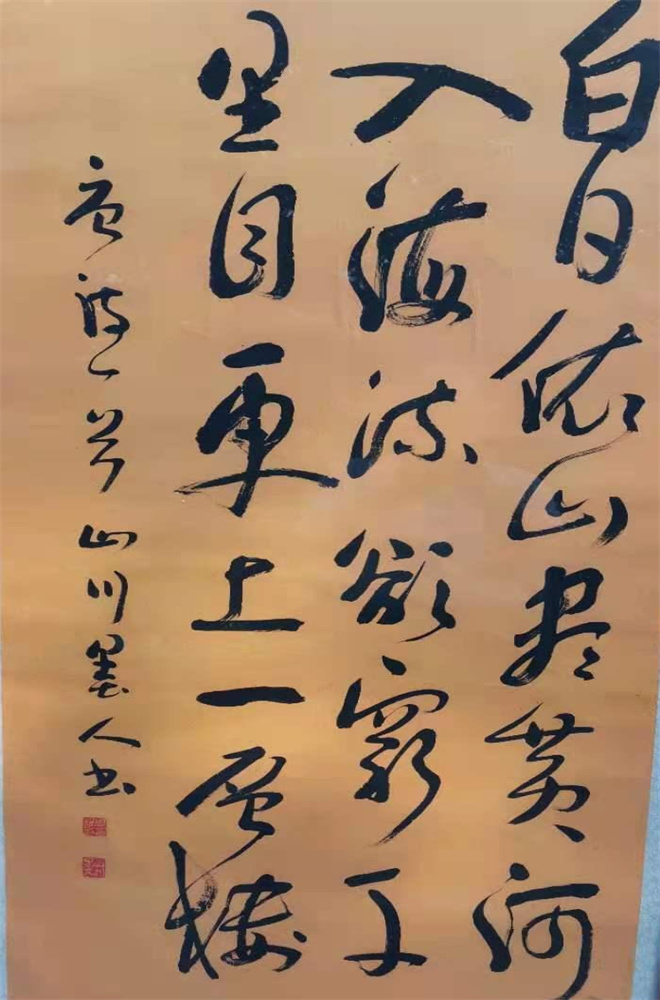 白日依山尽黄河
入海流欲穷千
里目更上一层楼
唐诗一首山川墨人书